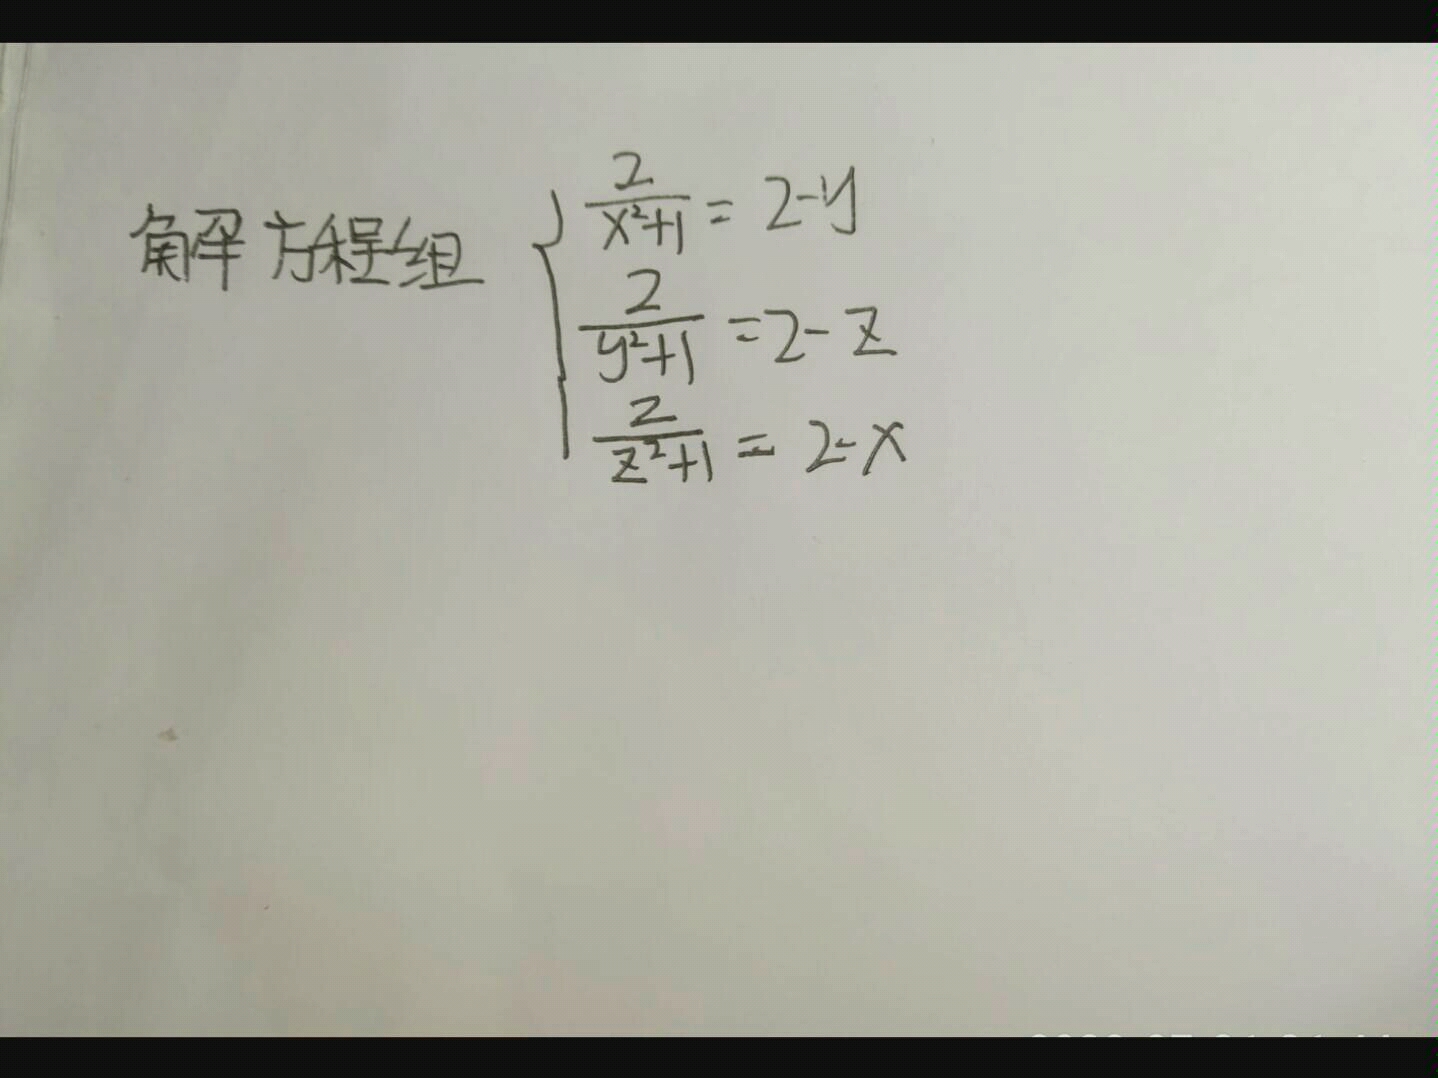 解方程组 { 2/(x²+1) = 2-y
2/(y²+1) = 2-z
2/(z²+1) = 2-x